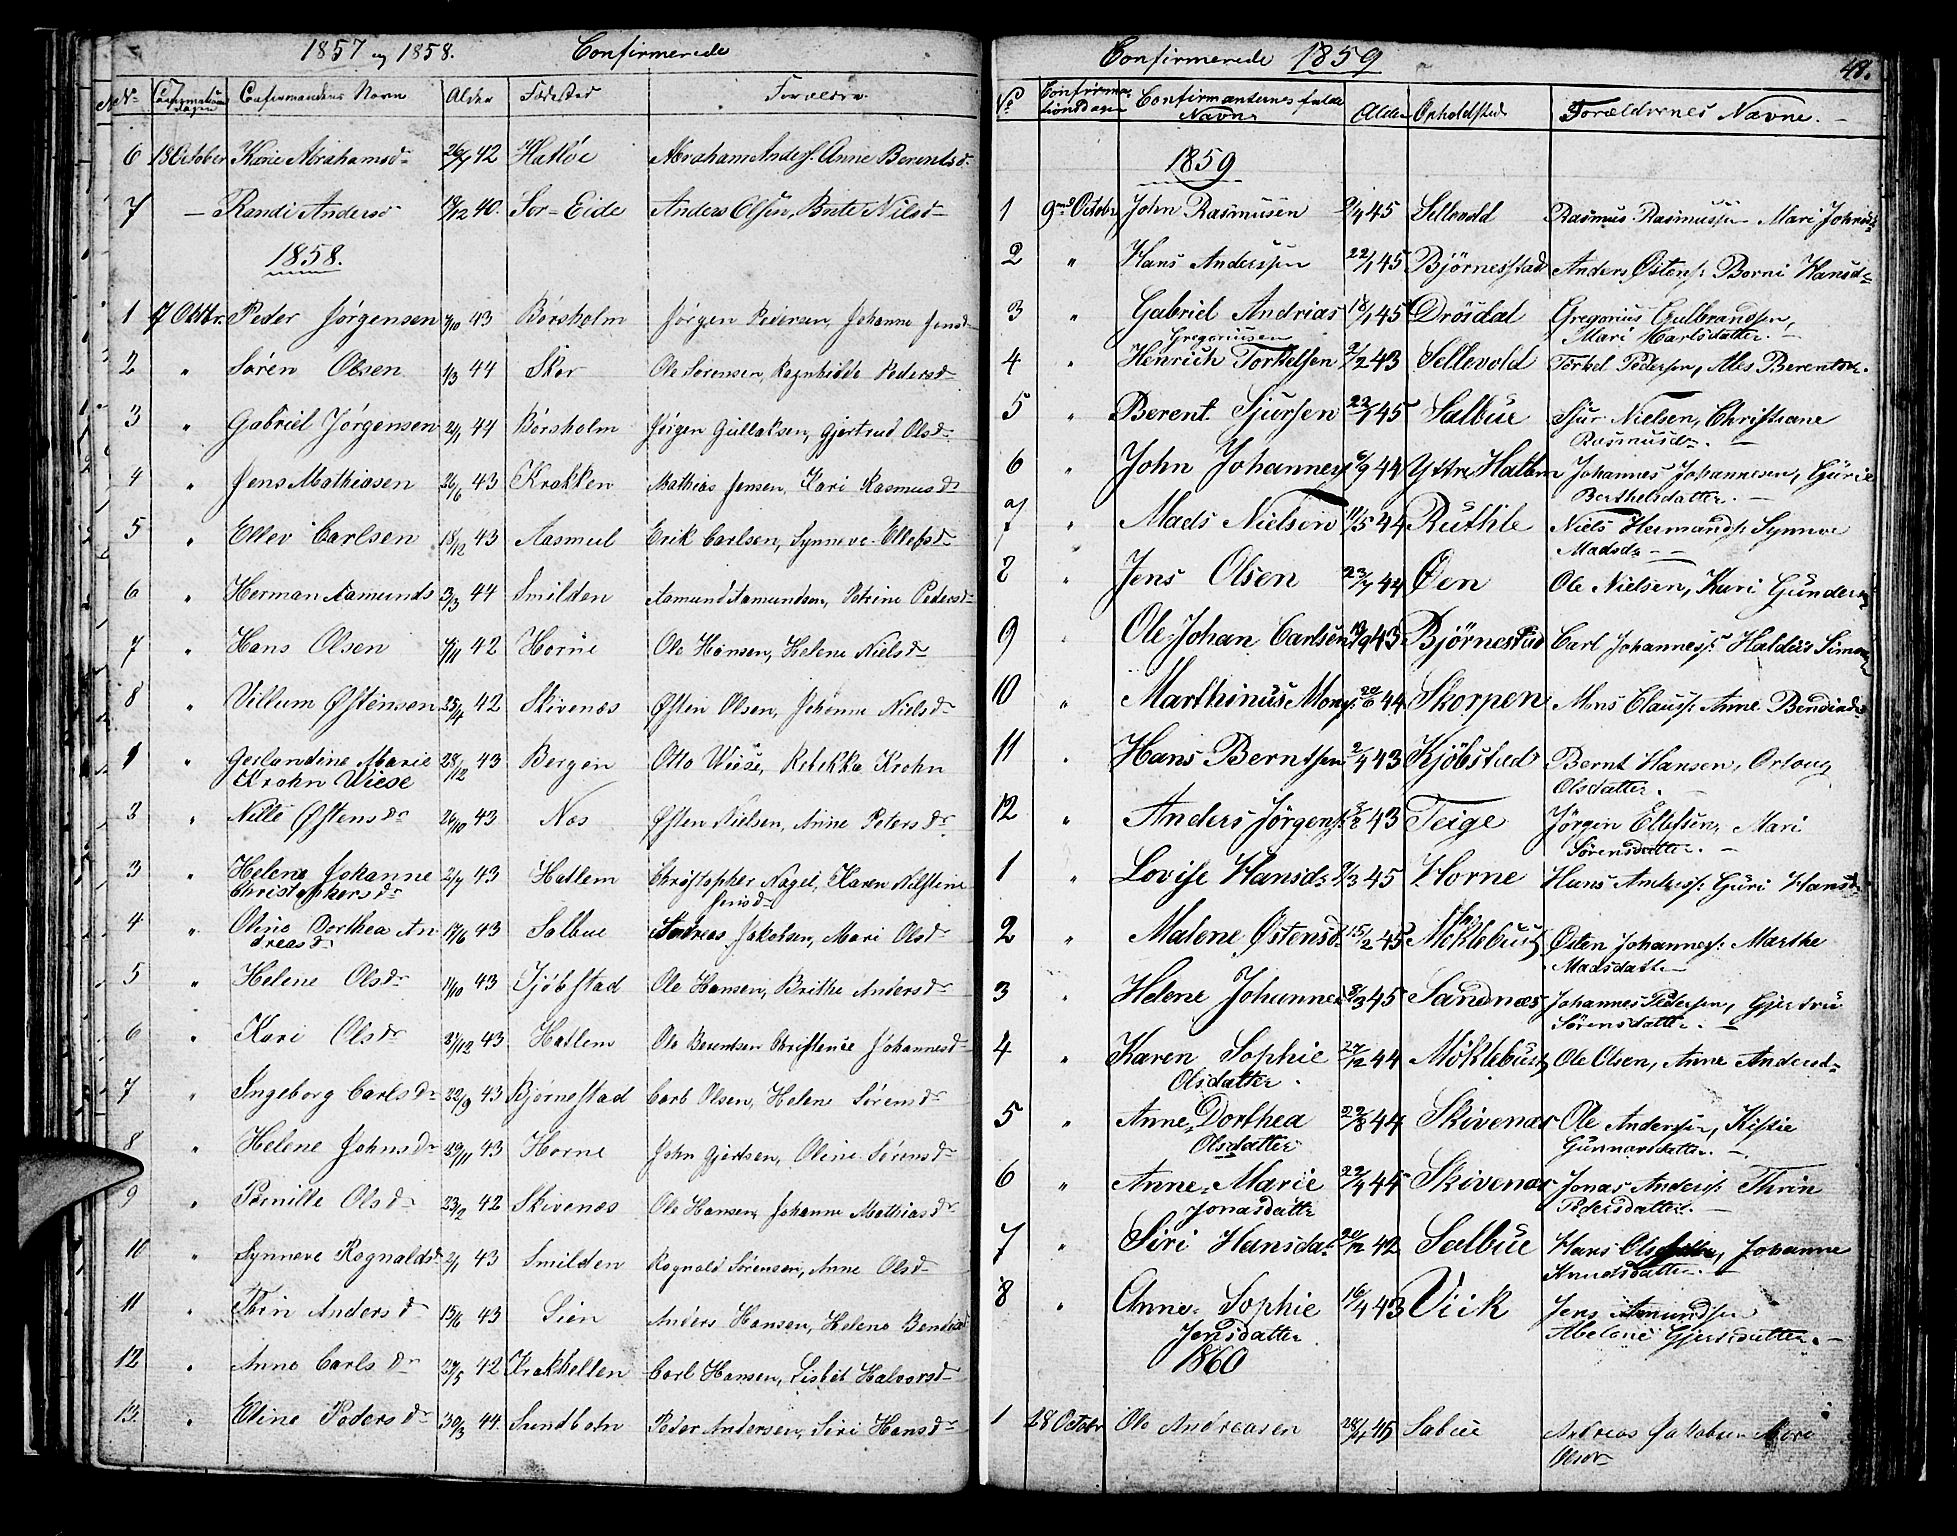 1857 og 1858. Confirmerede
No Confirmations dagen Confirmandens Navn Alder Fødested Forældre
6 18 October Kari Abrahamsdr 42 Hatløe Abraham Anders. Anne Berentsd.
7 — Randi Andersd 19/12 40. Sør-Eide Anders Olsen, Brite Nilsd
1858.
1 17 Oktbr. Peder Jørgensen 7/10 43 Børsholm Jørgen Pedersen, Johanne Jensd
2 " Søren Olsen 1/3 44 Skor Ole Sørensen, Ragnhilde Pedersd
3 " Gabriel Jørgensen 2/1 44 Børsholm Jørgen Gullaksen, Gjertrud Olsdr
4 " Jens Mathiasen 26/6 43 Krakken Mathias Jensen, Kari Rasmusdr
5 " Ellev Carlsen 18/12 43 Aasmul Erik Carlsen, Synneve Ellefsdr
6 " Herman Aamunds 3/3 44 Smilden Aamund Aamundsen, Petrine Pedersdr
7 " Hans Olsen 9/11 42 Horne Ole Hansen, Helene Nielsdr
8 " Villum Østensen 25/4 42 Skivenæs Østen Olsen, Johanne Nielsdr
1 " Gerlandine Marie 28/12 43 Bergen Otto Wiese, Rebekka Krohn
Krohn Wiese
3 " Nille Østensdr 26/10 43 Næs Østen Nielsen, Anne Petersdr
3 " Helene Johanne 2/7 43 Hatlem Christopher Nagel, Karen Nilstine
Christophersdr Jensdr
4 " Oline Dorthea An 17/6 43 Salbue Andreas Jakobsen, Mari Olsdr
dreasd
5 " Helene Olsdr 11/10 43 Tjøbstad Ole Hansen, Brithe Andersdr
6 " Kari Olsdr 31/12 43 Hatlem Ole Berentsen Christense Johannesdr
7 " Ingeborg Carlsdr 22/9 43 Bjørnestad Carl Olsen, Helene Sørensdr
8 " Helene Johnsdr 29/11 43 Horne John Gjertsen, Oline Sørensdr
9 " Pernille Olsdr 23/2 42 Skivenæs Ole Hansen, Johanne Mathiasdr
10 " Synneve Rognaldsd 2/1 43 Smilden Rognald Sørensen, Anne Olsdr
11 " Thrin Andersd 15/6 43 Lien Anders Hansen, Helene
12 " Anne Carlsdr 27/5 42 Krakhellen Carl Hansen, Lisbet Halvorsdr
13. " Eline Pedersdr 30/3 44. Sundbotn Peder Andersen, Siri Hansdr
Confirmerede 1859 49.
No Confirmationsdagen Confirmanternes fulde Navne Alder Opholdsted Forældrenes Navne. —
1859
1 9nd Octobr John Rasmusen 9/4 45 Sellevold Rasmus Rasmussen Mari
2 " Hans Anderssen 22/1 45 Bjørnesstad Anders Østens. Borni Hansdr
3 " Gabriel Andrias 18/1 45 Drösdal Gregorius Gulbrandsen,
Gregoriussen Mari Karlsdatter. —
4 " Henrich Torkelsen 7/12 43 Sellevold Torkel Pedersen, Ales Berentsdr.
5 " Berent Sjursen 22/1 45 Salbue Sjur Nielsen, Christiane
Rasmusdr. —
6 " John Johannes. 6/9 44 Yttre Hatlem Johannes Johannesen, Gürie
Berthelsdatter. —
7 " Mads Nielsen 11/5 44 Ruthle Niels Hermands. Synnve
Madsdr — —
8 " Jens Olsen 23/7 44 Øen Ole Nielsen, Kari
9 " Ole Johan Carlsen 13/9 43 Bjørnestad Carl Johannes.
10 " Marthinus Mons. 20/6 44 Skorpen Mons Claus. Anne
11 " Hans Berntsen 2/4 43 Kjøbstad Bernt Hansen, Orloug
Olsdatter. —
12 " Anders Jörgens. 43 Teige Jörgen Ellefsen, Mari
Sörensdatter. —
1 " Lovise Hansdr 9/3 45 Horne Hans Anders. Güri Hansdr
2 " Malene Østensd 15/2 45 Møklebust Østen Johannes. Marthe
Madsdatter
3 " Helene Johanne 8/3 45 Sandnæs Johannes Pedersen, Gjertrü
Sørensdatter. —
4 " Karen Sophie 27/12 44 Møklebust Ole Olsen, Anne Andersdr
Olsdatter.
5 " Anne Dorthea 22/8 44 Skivenæs Ole Anderssen, Kistie
Olsdatter Gunnarsdatter. —
6 " Anne Marie 22/4 45 Skivenæs Jonas Anders. Thrin
Jonasdatter Pedersdatter. —
7 " Siri Hansdat 20/12 42 Salbue Hans Johanne
Knudsdatter. —
8 " Anne Sophie 16/4 43 Viik Jens Amundsen
Jensdatter. Abelone Gjertsdatter. —
1860
1 28 Octobr Ole Andreasen 28/4 45 Salbue Andreas Jakobsen Mari
Olsdr